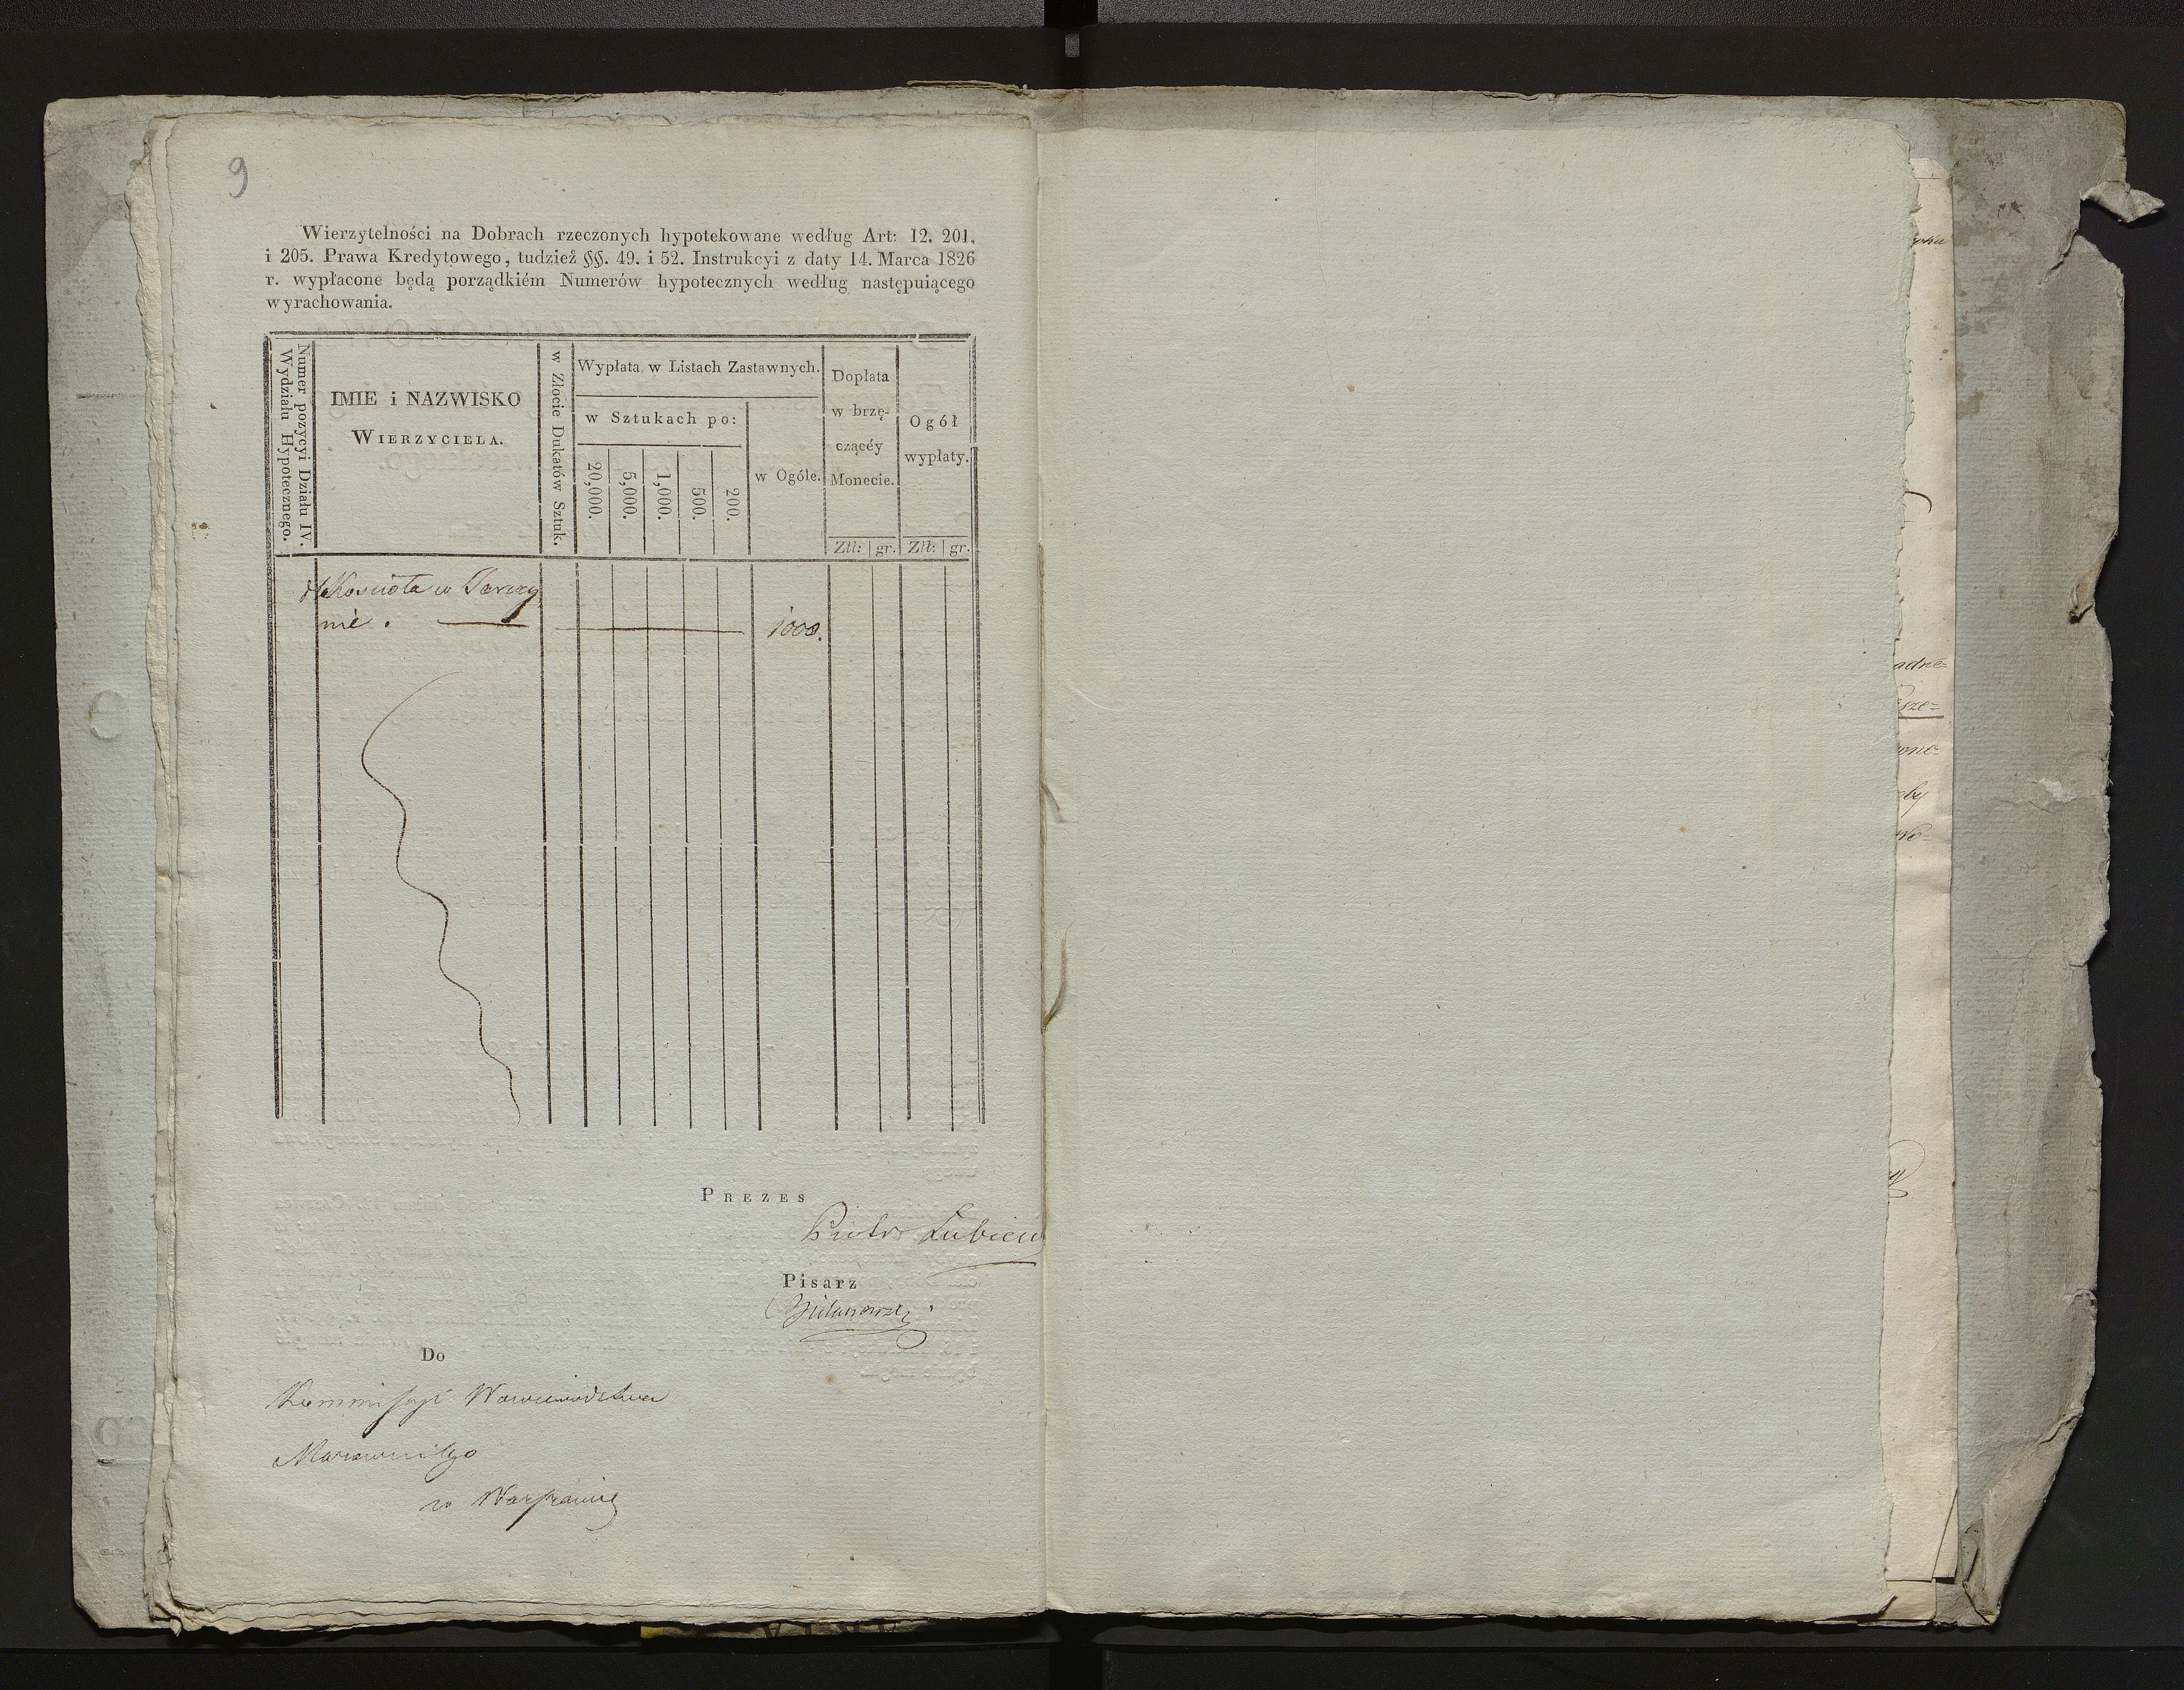 9
Wierzytelności na Dobrach rzeczonych hypotekowane według Art: 12. 201.
i 205. Prawa Kredytowego, tudzież §§. 49. i 52. Instrukcyi z daty 14. Marca 1826
r. wypłacone będą porządkiém Numerów hypotecznych według następuiącego
wyrachowania.
Numer pozycyi Działu IV.
Wydziału Hypotecznego.
IMIE i NAZWISKO
WIERZYCIELA.
w Złocie Dukatów Sztuk.
Wypłata w Listach Zastawnych.
w Sztukach po:
20,000.
5,000.
1,000.
500.
200.
w Ogóle.
Dopłata
w brzę-
czącéy
Monecie.
Ogół
wypłaty.
Złł: gr. Złł: gr.
Kościoła w Tarczy
nie. 1000.
PREZES
Piotr Łubień
Pisarz
Do
Kommissyi Woiewództwa
Mazowieckiego
w Warszawie
adne=
sze=
oby